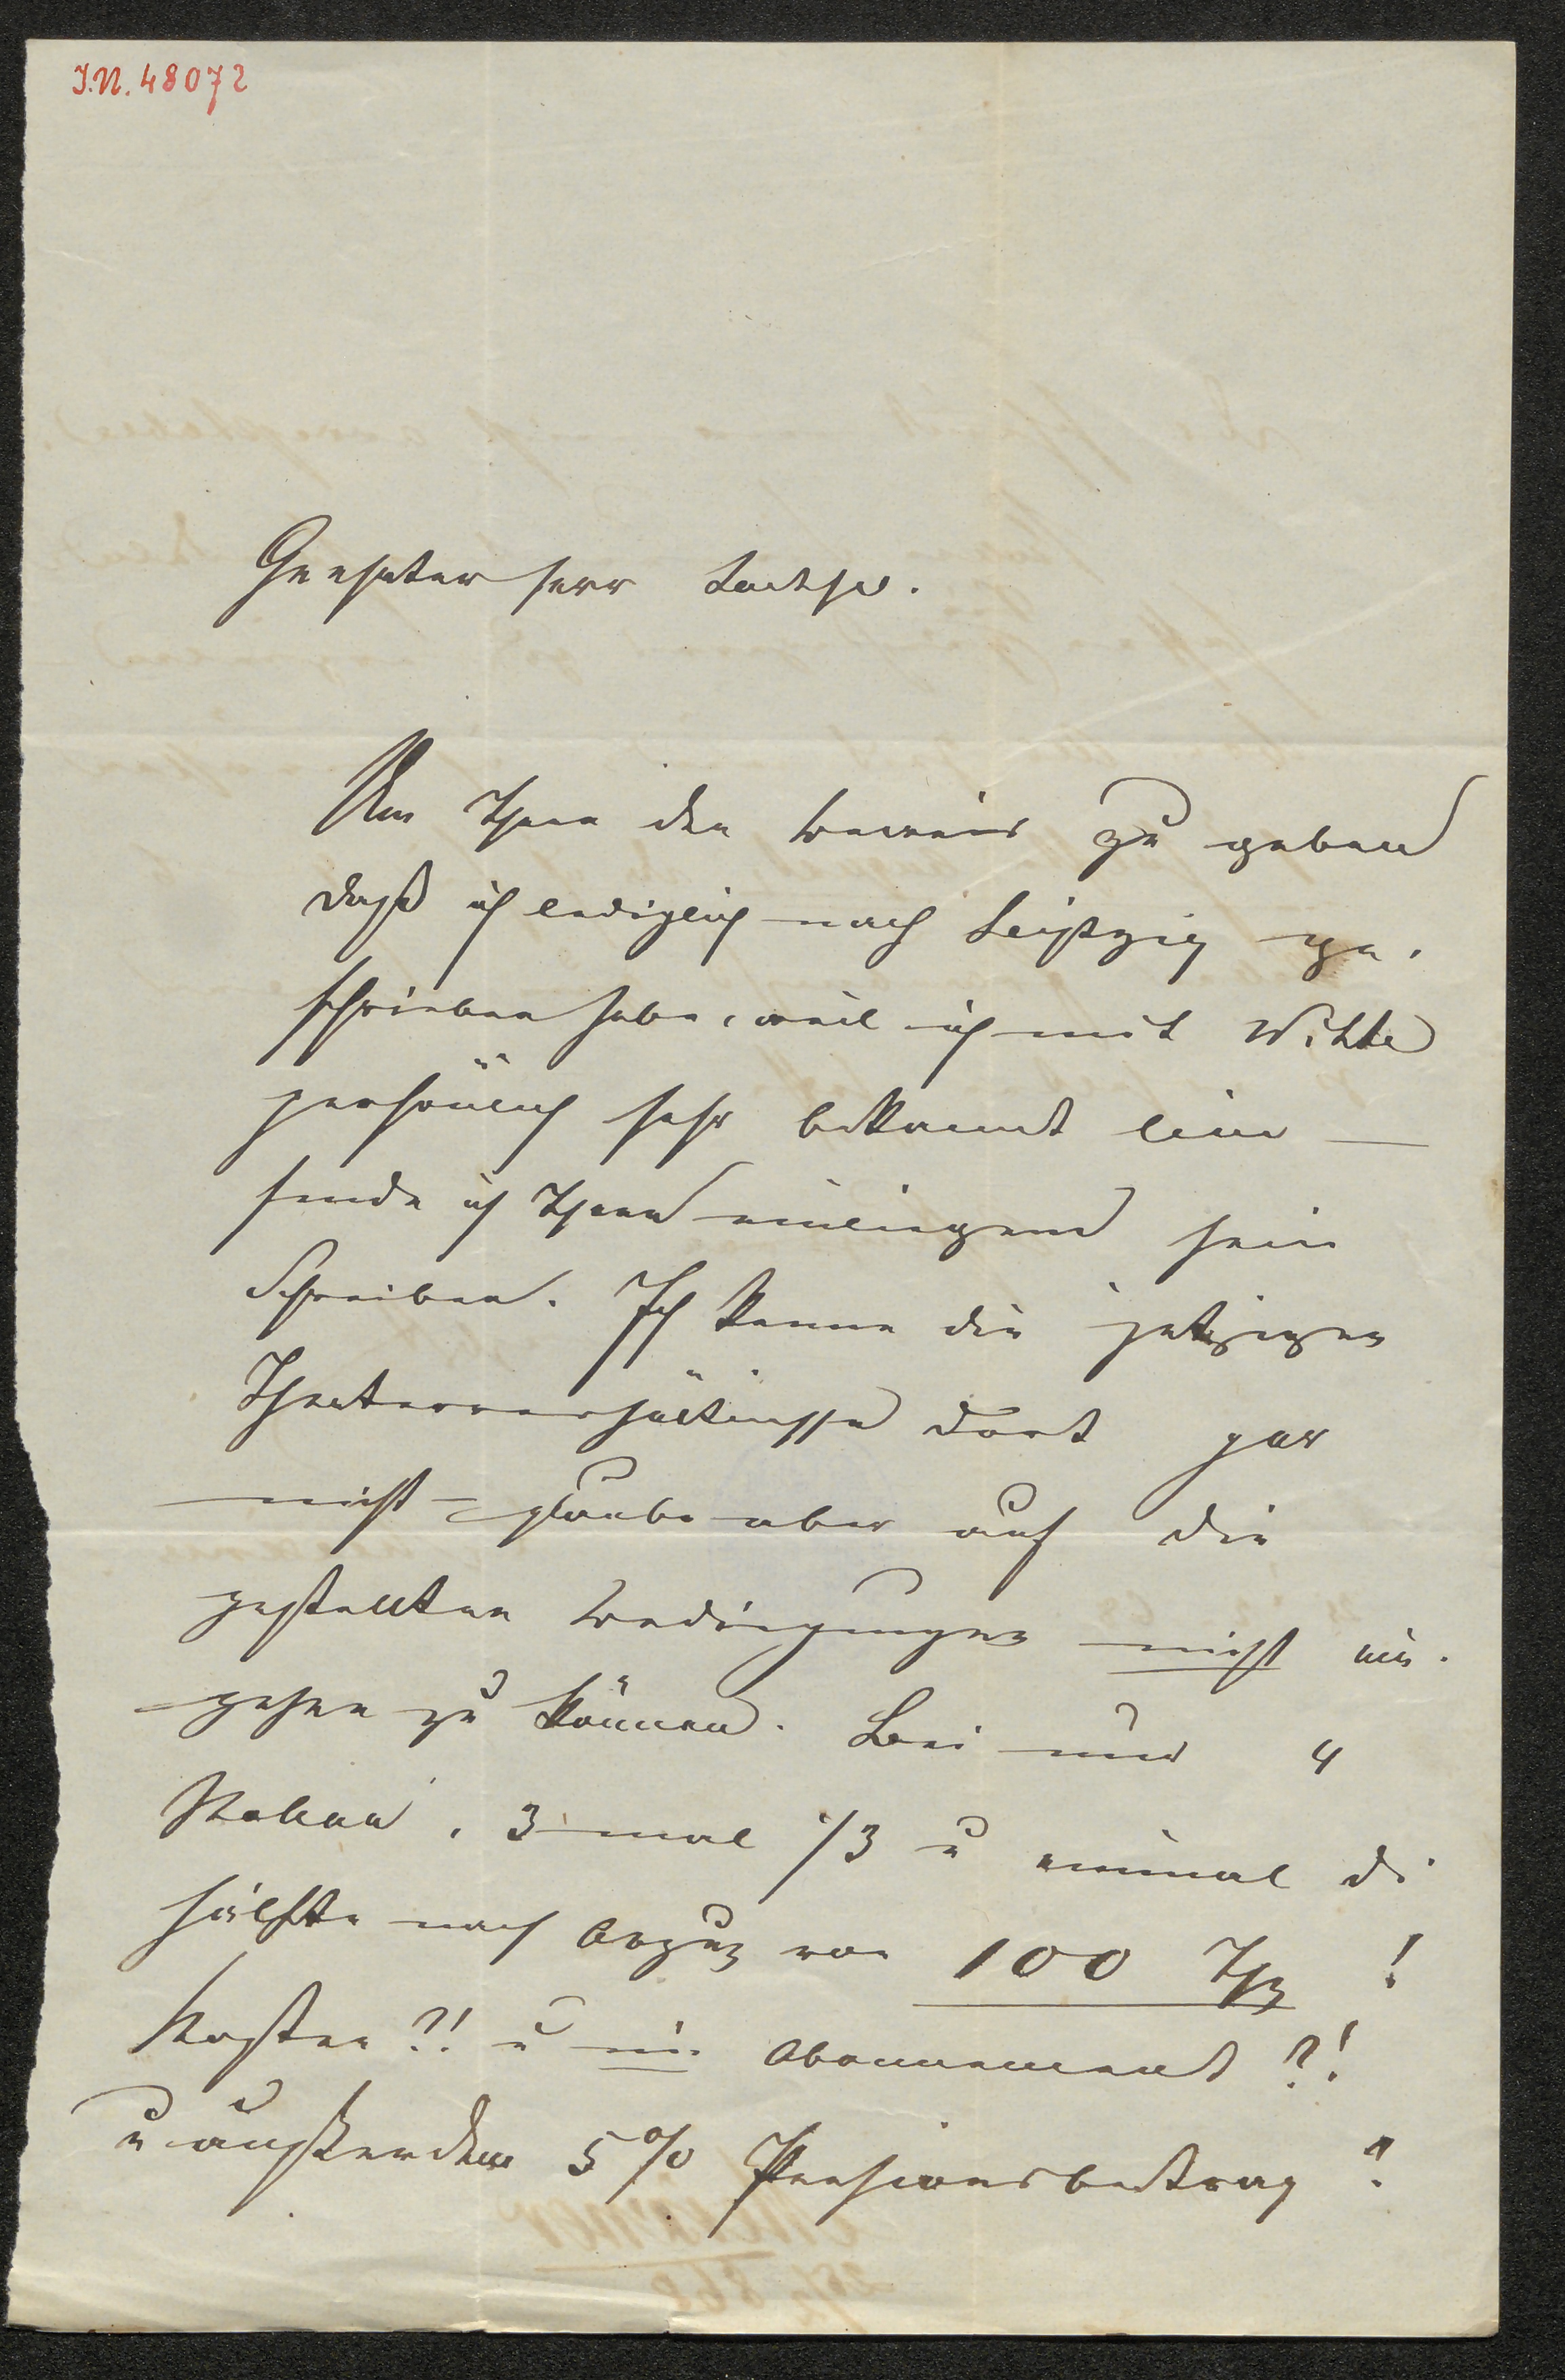 I.N. 48072
Geehrter Herr Sachse.
Um Ihnen den Beweis zu geben
daß ich lediglich nach Leipzig ge-
schrieben habe, weil ich mit Witte
persönlich sehr bekannt bin —
sende ich Ihnen einliegend sein
Schreiben. Ich kenne die jetzigen
Theaterverhältnisse dort gar
nicht – glaube aber auf die
gestellten Bedingungen nicht ein-
gehen zu können. Bei nur 4
Rollen, 3 mal 1/3 u einmal di
Hälfte nach Abzug von 100 Th !
Kosten ?! u im Abonnement ?!
u außerdem 5 % Pensionsbeitrag ?